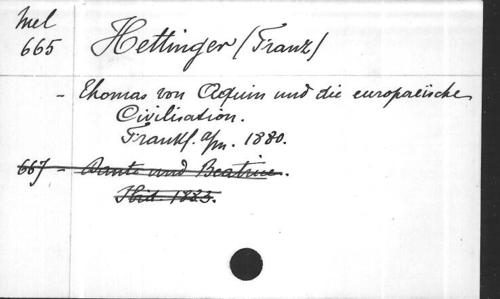 Mel
665
Hettinger (Franz)
- Thomas von Aquin und die europaeische
Civilisation.
Frankf. a/m. 1880.
667 - Dante und Beatrice.
Ibid. 1883.